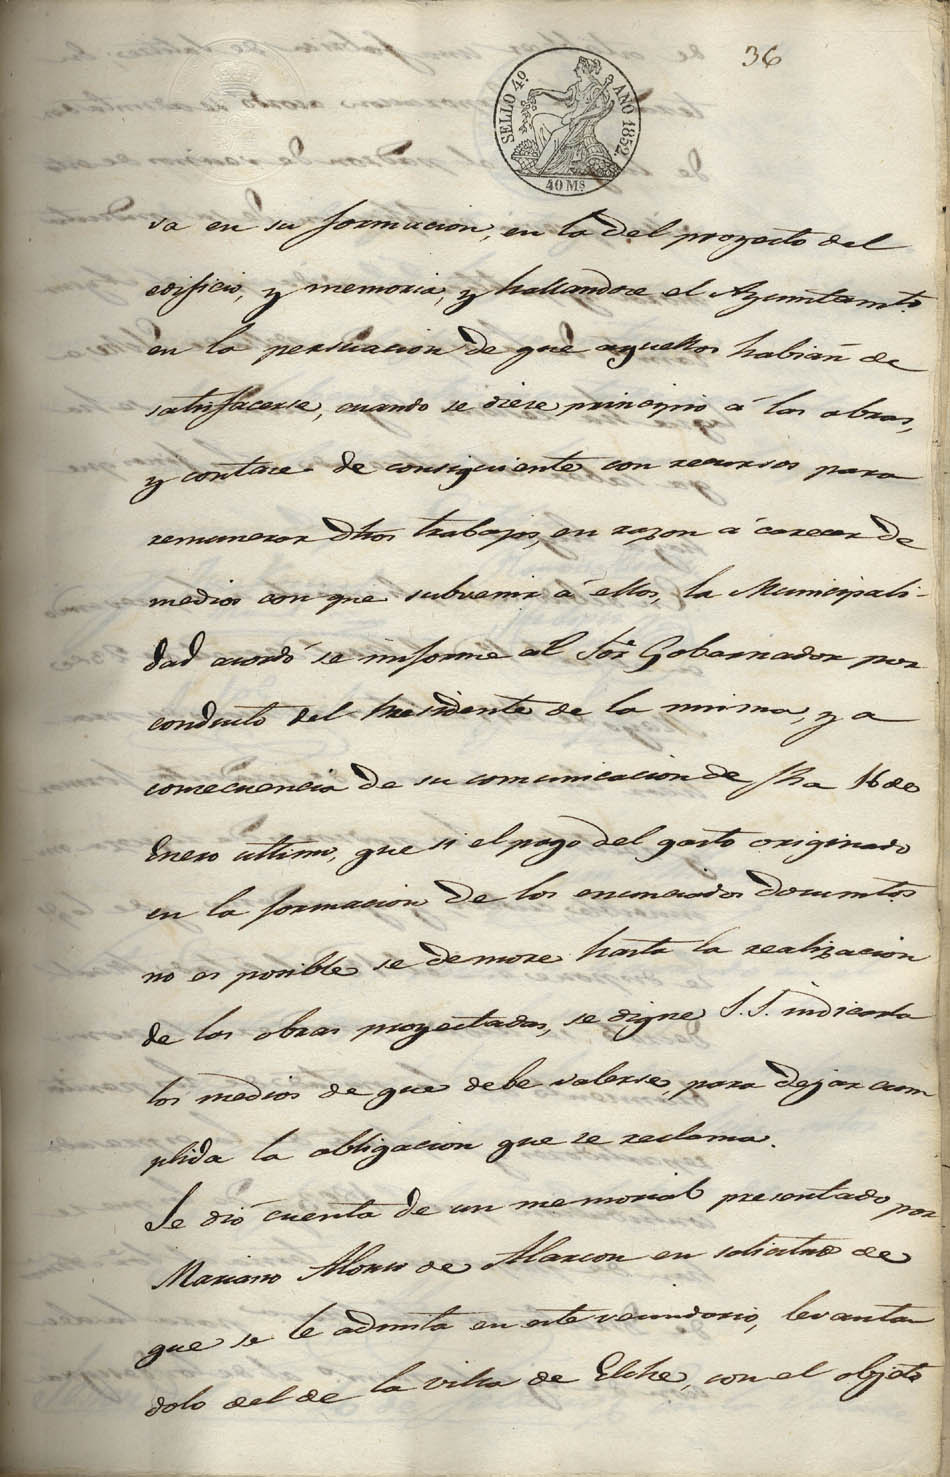 36
SELLO 4º. AÑO 1852.
40 Ms
va en su formacion, en la del proyecto del
edificio, y memoria, y hallandose el Ayuntamto.
en la persuacion de que aquellos habian de
satisfacerse, cuando se diese principio á las obras,
y contase de consiguiente con recursos para
remunerar dhos trabajos, en razon á carecer de
medios con que subvenir á ellos, la Municipali-
dad acordó se informe al Sor. Gobernador por
conducto del Presidente de la misma, y a
consecuencia de su comunicacion de fha 16 de
Enero ultimo, que si el pago del gasto originado
en la formacion de los enunciados documtos.
no es posible se demore hasta la realizacion
de las obras proyectadas, se digne S.S. indicarla
los medios de que debe valerse, para dejar cum
plida la obligacion que se reclama.
Se dió cuenta de un memorial presentado por
Mariano Alonso de Alarcon en solicitud de
que se le admita en este vecindario, levantan
dolo del de la villa de Elche, con el objeto